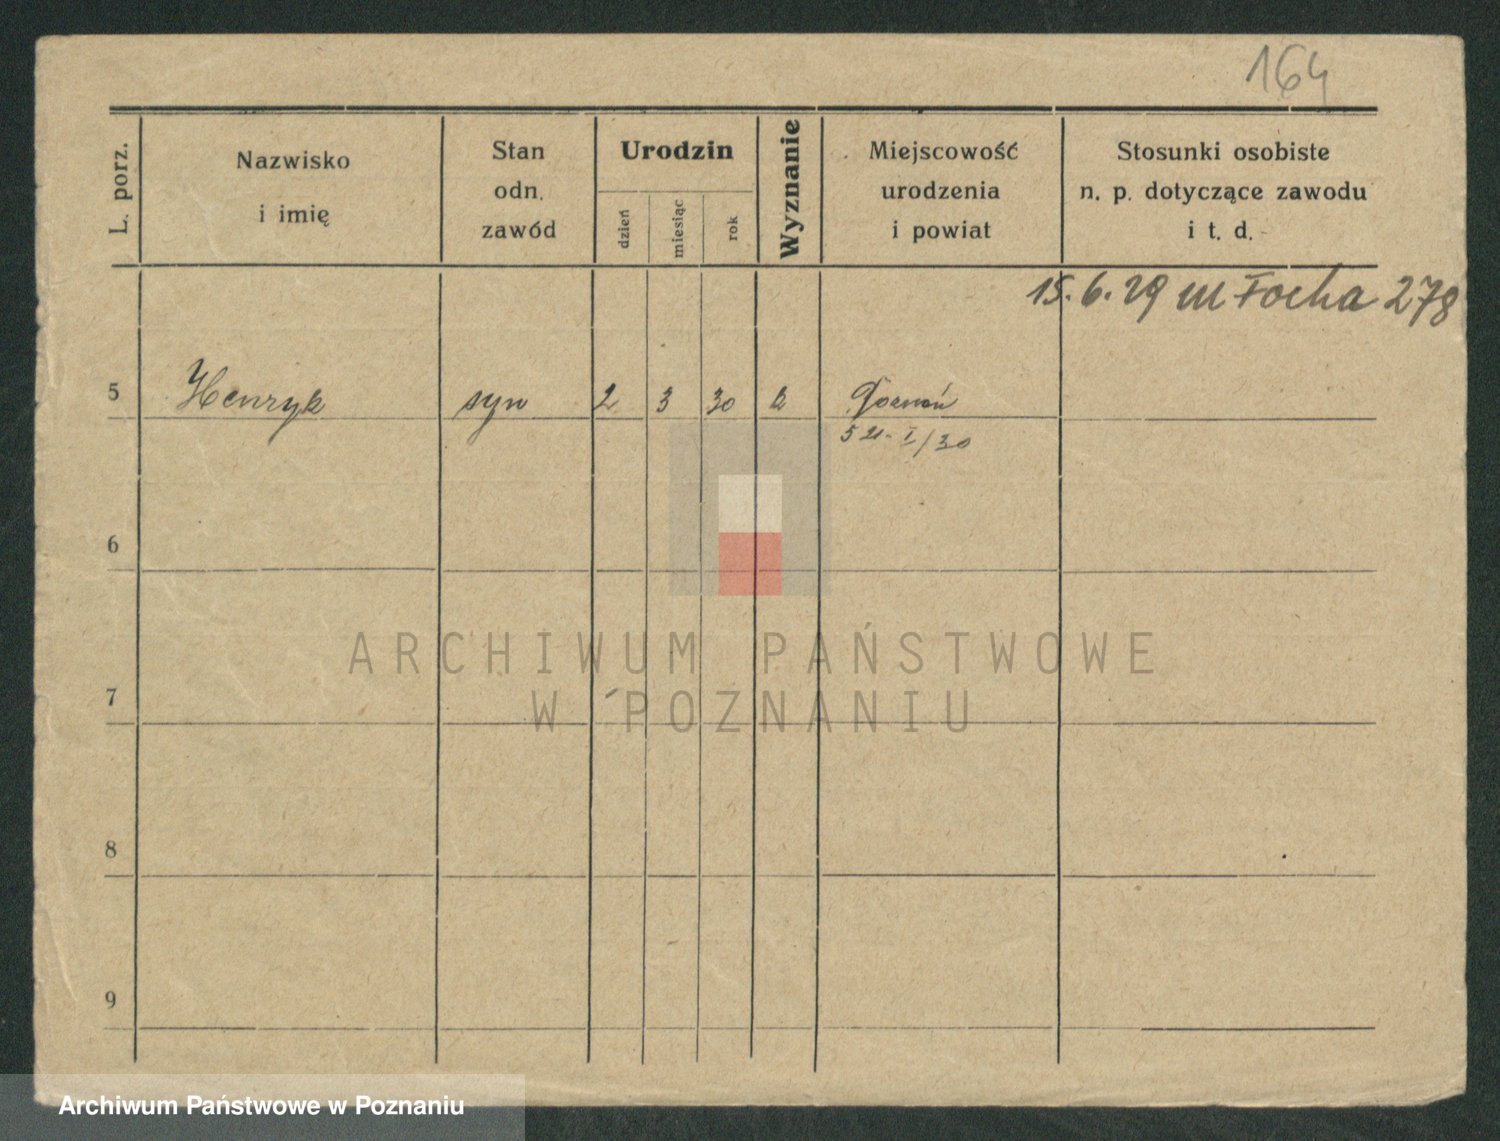 164
L. porz.
Nazwisko
i imię
Stan
odn.
zawód
Urodzin
dzień
miesiąc
rok
Wyznanie
Miejscowość
urodzenia
i powiat
Stosunki osobiste
n. p. dotyczące zawodu
i t. d.
15. 6. 29 Focha 278
5 Henryk syn 2 3 30 Poznań
I/30
6
7
8
9
ARCHIWUM PAŃSTWOWE
W POZNANIU
Archiwum Państwowe w Poznaniu